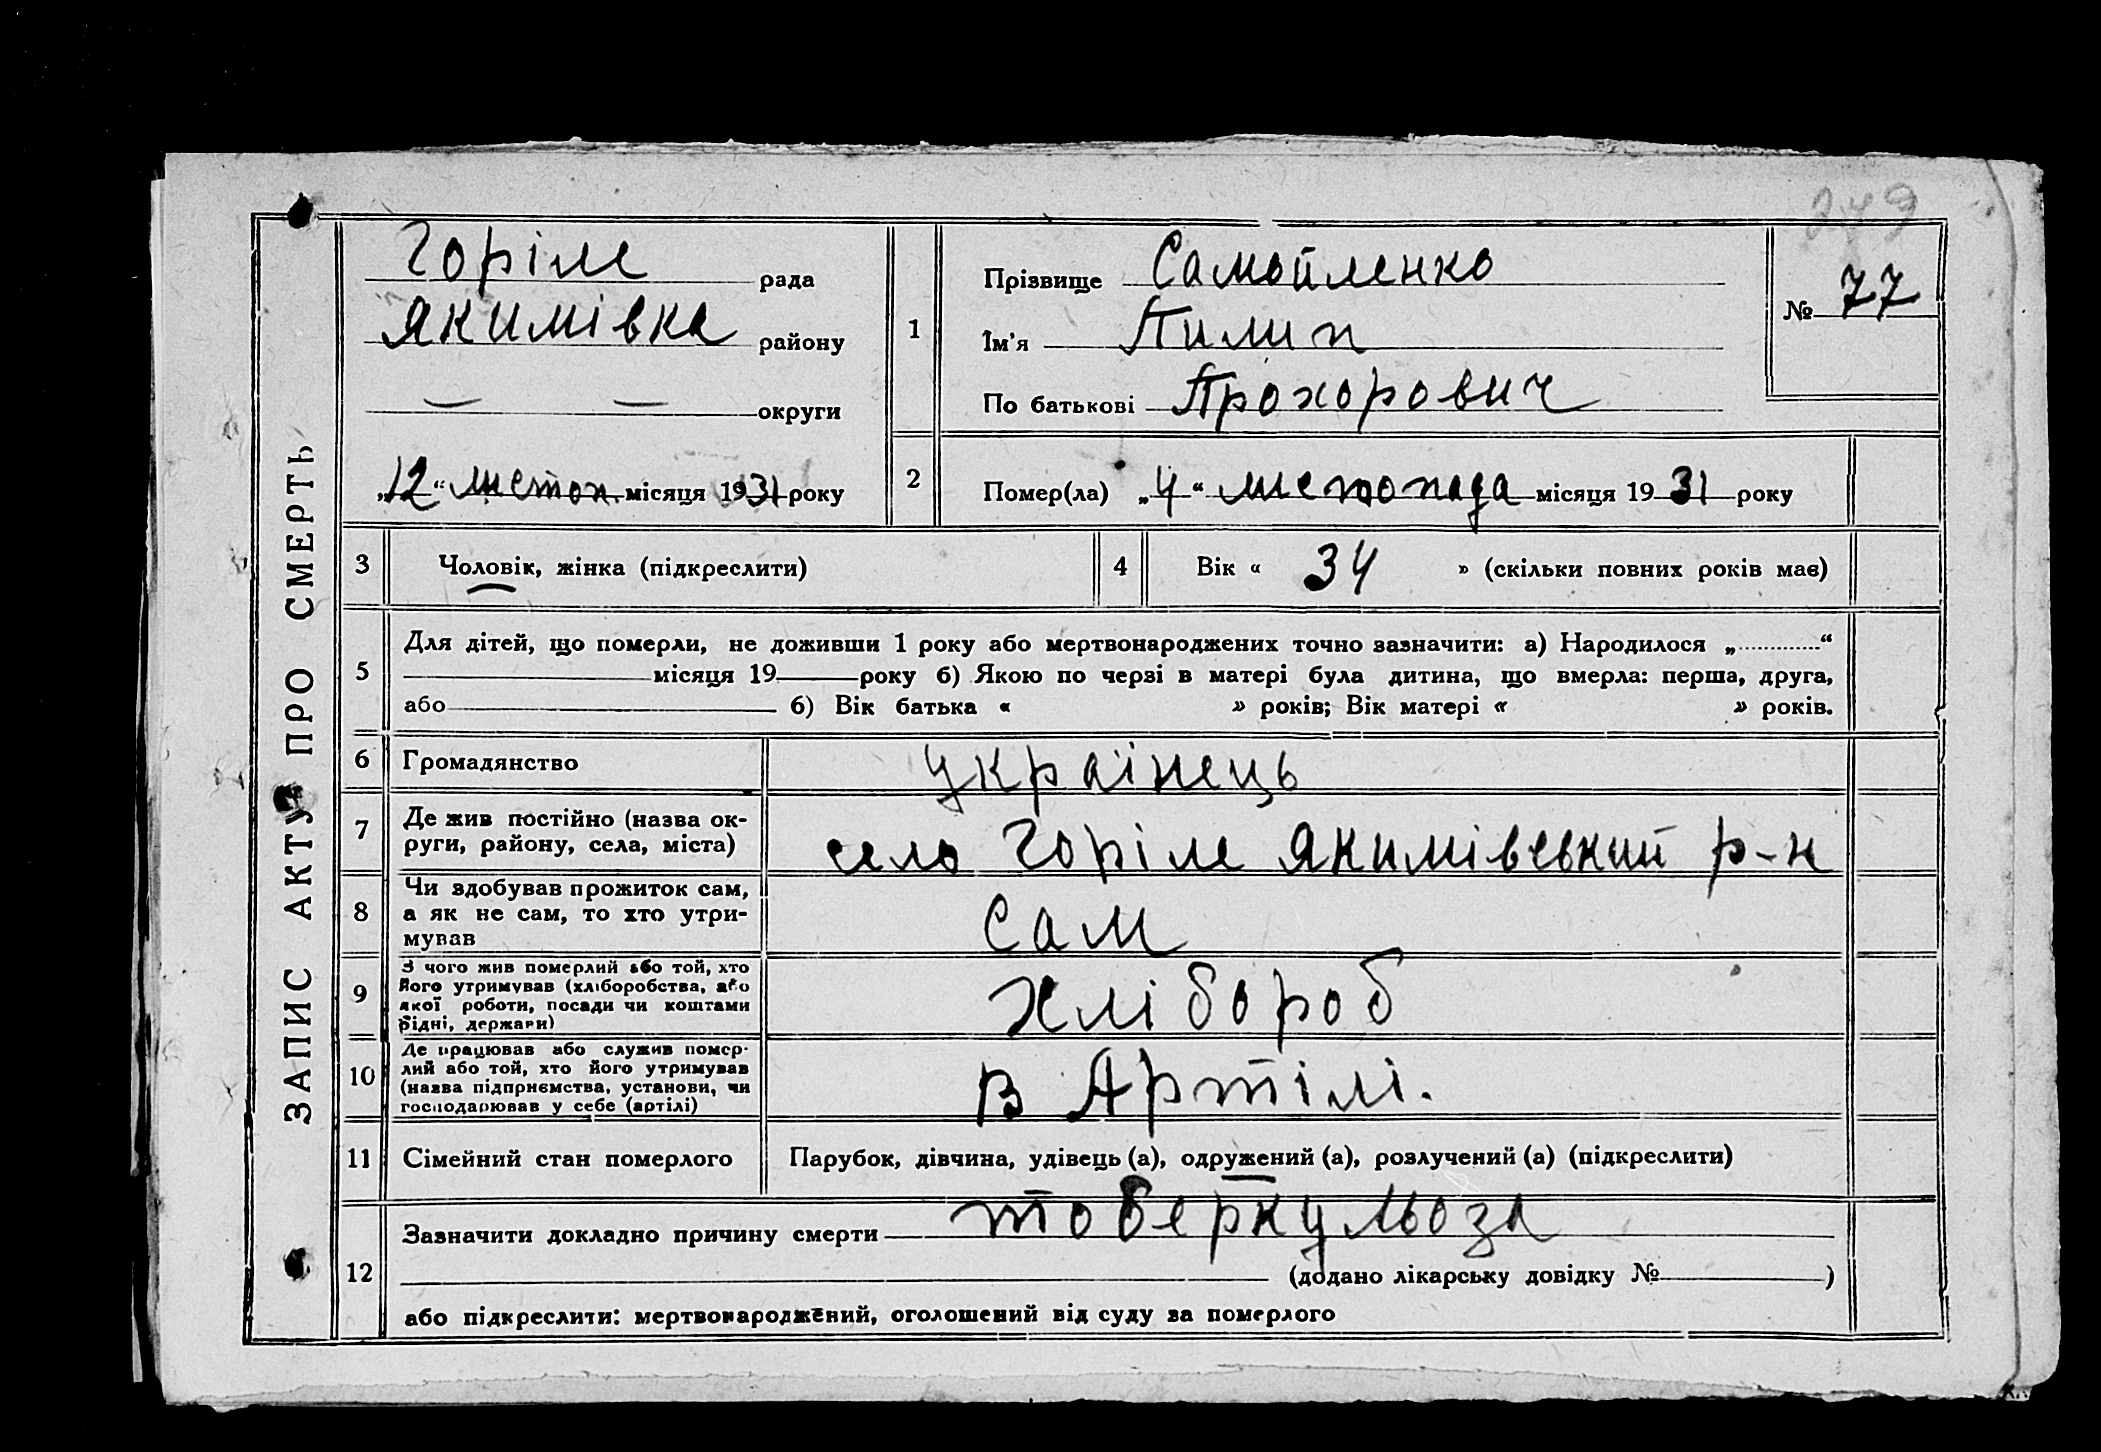 379
ЗАПИС АКТУ ПРО СМЕРТЬ
Горіле рада
Якимівка району
— — округи
„12“ листоп. місяця 1931 року
1
Прізвище Самойленко
Ім'я Пилип
По батькові Прохорович
№ 77
2
Помер(ла) „4“ листопада місяця 1931 року
3 Чоловік, жінка (підкреслити)
4 Вік « 34 » (скільки повних років має)
5
Для дітей, що померли, не доживши 1 року або мертвонароджених точно зазначити: а) Народилося „............“
місяця 19 року б) Якою по черзі в матері була дитина, що вмерла: перша, друга,
або б) Вік батька « » років; Вік матері « » років.
6 Громадянство українець
7 Де жив постійно (назва ок-
руги, району, села, міста) село Горіле Якимівський р-н
8 Чи здобував прожиток сам,
а як не сам, то хто утри-
мував Сам
9 З чого жив померлий або той, хто
його утримував (хліборобства, або
якої роботи, посади чи коштами
рідні, держави) хлібороб
10 Де працював або служив помер-
лий або той, хто його утримував
(назва підприємства, установи, чи
господарював у себе (артілі) в Артілі.
11 Сімейний стан померлого Парубок, дівчина, удівець (а), одружений (а), розлучений (а) (підкреслити)
12 Зазначити докладно причину смерти тоберкульоза
(додано лікарську довідку № )
або підкреслити: мертвонароджений, оголошений від суду за померлого